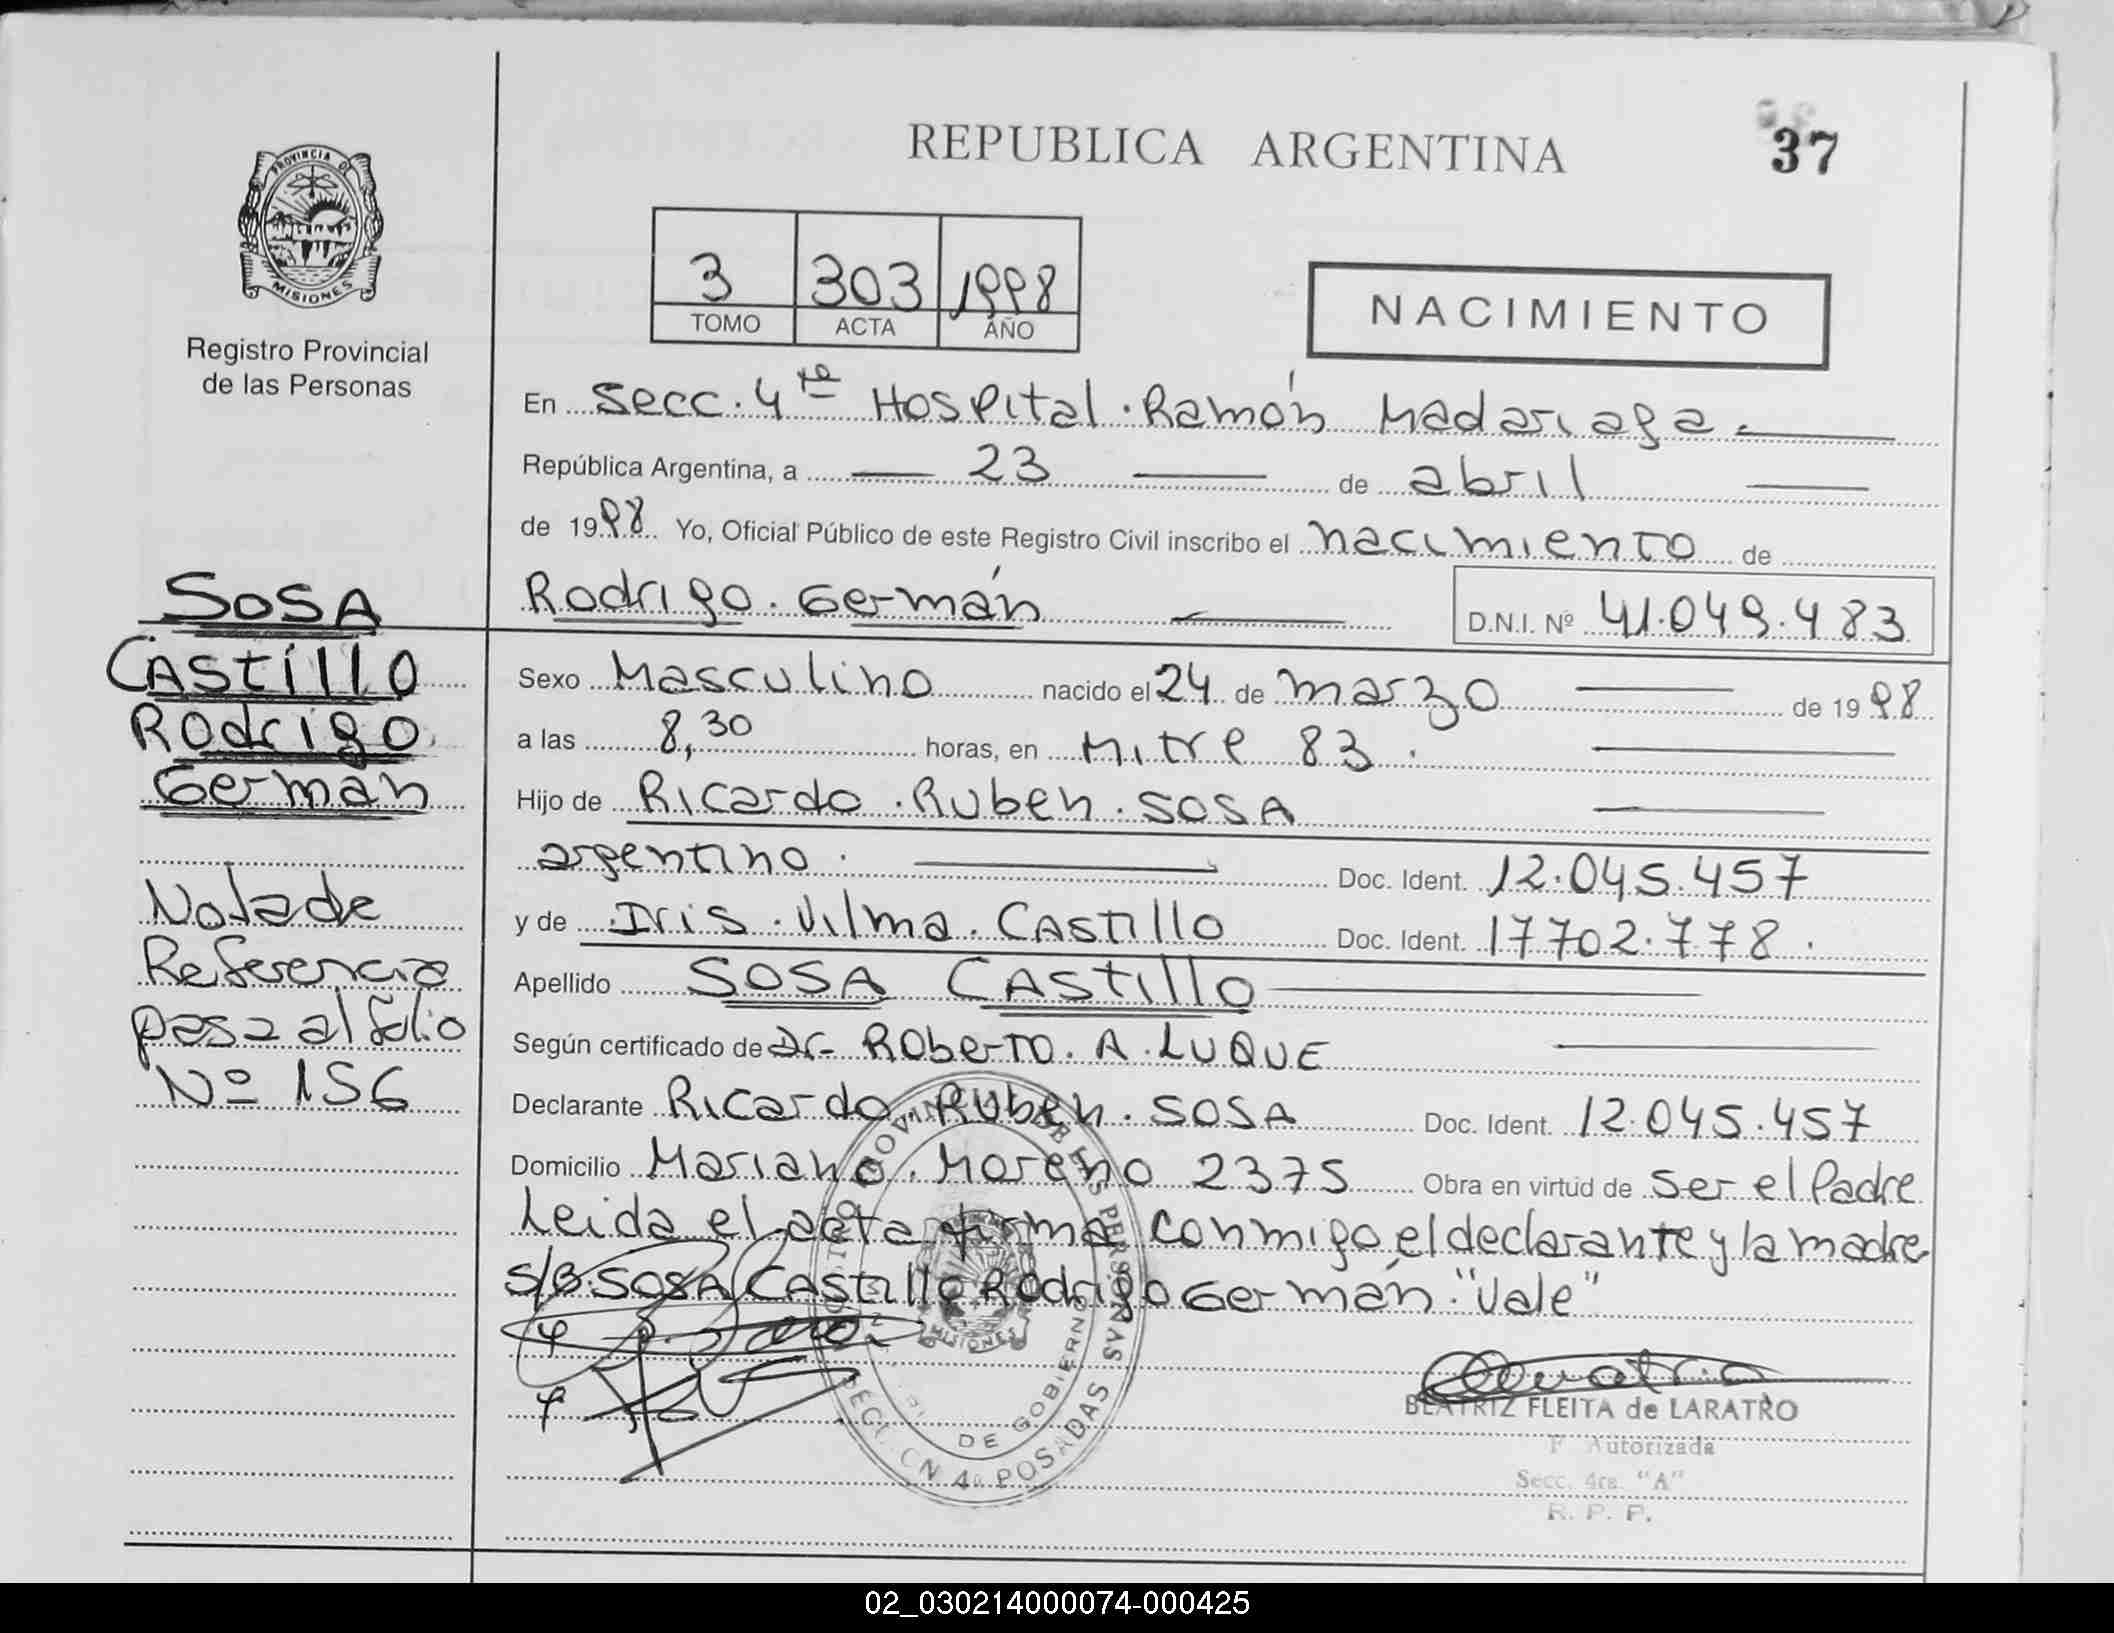 REPUBLICA ARGENTINA
37
PROVINCIA DE
MISIONES
Registro Provincial
de las Personas
3 303 1998
TOMO ACTA AÑO
NACIMIENTO
En Secc. 4ta Hospital. Ramón Madariaga.
República Argentina, a 23 de abril
de 1998 Yo, Oficial Público de este Registro Civil inscribo el nacimiento de
Rodrigo. Germán D.N.I. Nº 41.049.483
Sexo Masculino nacido el 24 de marzo de 1998
a las 8,30 horas, en Mitre 83.
Hijo de Ricardo. Ruben. SOSA
argentino. Doc. Ident. 12.045.457
y de Iris. Vilma. CASTillo Doc. Ident. 17702.778.
Apellido SOSA CASTillo
Según certificado de Dr. Roberto. A. LUQUE
Declarante Ricardo. Ruben. SOSA Doc. Ident. 12.045.457
Domicilio Mariano. Moreno 2375 Obra en virtud de ser el Padre
Leida el acta firma conmigo el declarante y la madre
S/B. SOSA CASTillo Rodrigo Germán. "Vale"
SOSA
CASTillo
Rodrigo
German
Nota de
Referencia
pasa al folio
Nº 156
MISIONES
DE GOBIERNO
POSADAS
BEATRIZ FLEITA de LARATRO
F Autorizada
Secc. 4ta. "A"
R. P. P.
02_030214000074-000425